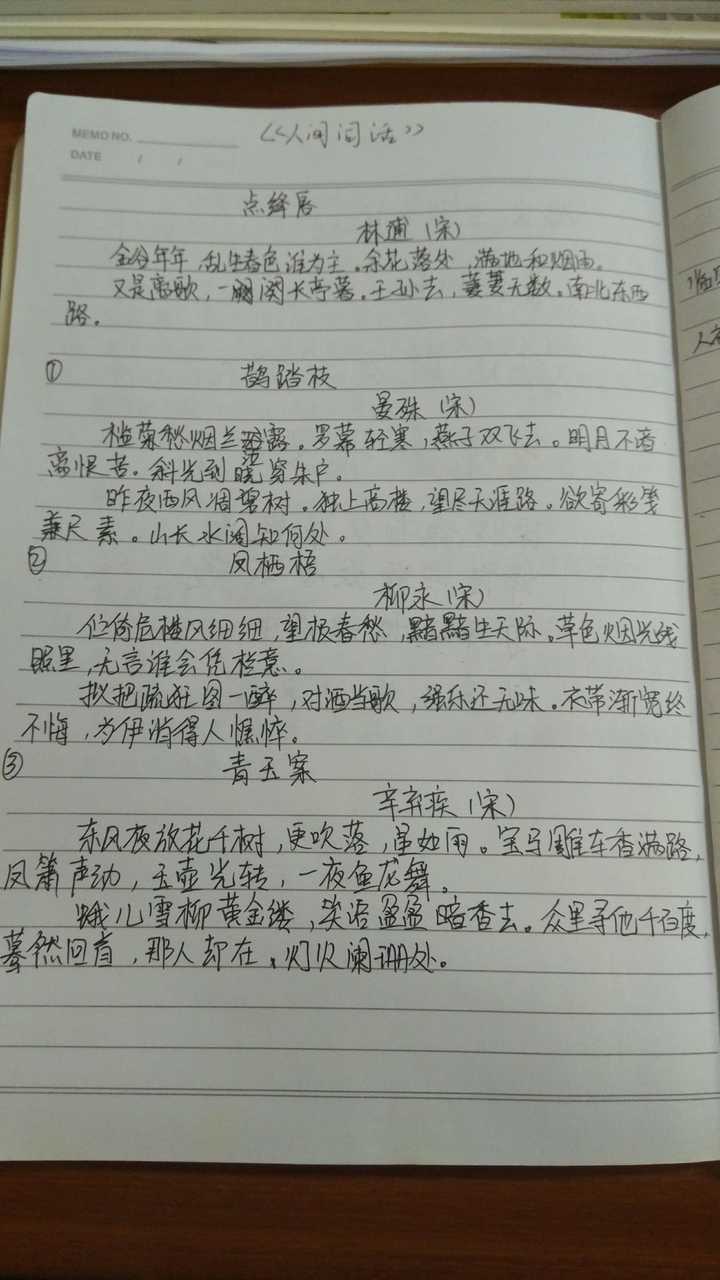 MEMO NO.
《人间词话》
DATE / /
点绛唇
林逋(宋)
金谷年年,乱生春色谁为主。余花落处,满地和烟雨。
又是离歌,一阕长亭暮。王孙去,萋萋无数。南北东西
路。
① 鹊踏枝
晏殊(宋)
槛菊愁烟兰泣露。罗幕轻寒,燕子双飞去。明月不谙
离恨苦。斜光到晓穿朱户。
昨夜西风凋碧树。独上高楼,望尽天涯路。欲寄彩笺
兼尺素。山长水阔知何处。
② 凤栖梧
柳永(宋)
伫倚危楼风细细,望极春愁,黯黯生天际。草色烟光残
照里,无言谁会凭栏意。
拟把疏狂图一醉,对酒当歌,强乐还无味。衣带渐宽终
不悔,为伊消得人憔悴。
③ 青玉案
辛弃疾(宋)
东风夜放花千树,更吹落,星如雨。宝马雕车香满路,
凤箫声动,玉壶光转,一夜鱼龙舞。
蛾儿雪柳黄金缕,笑语盈盈暗香去。众里寻他千百度,
蓦然回首,那人却在,灯火阑珊处。